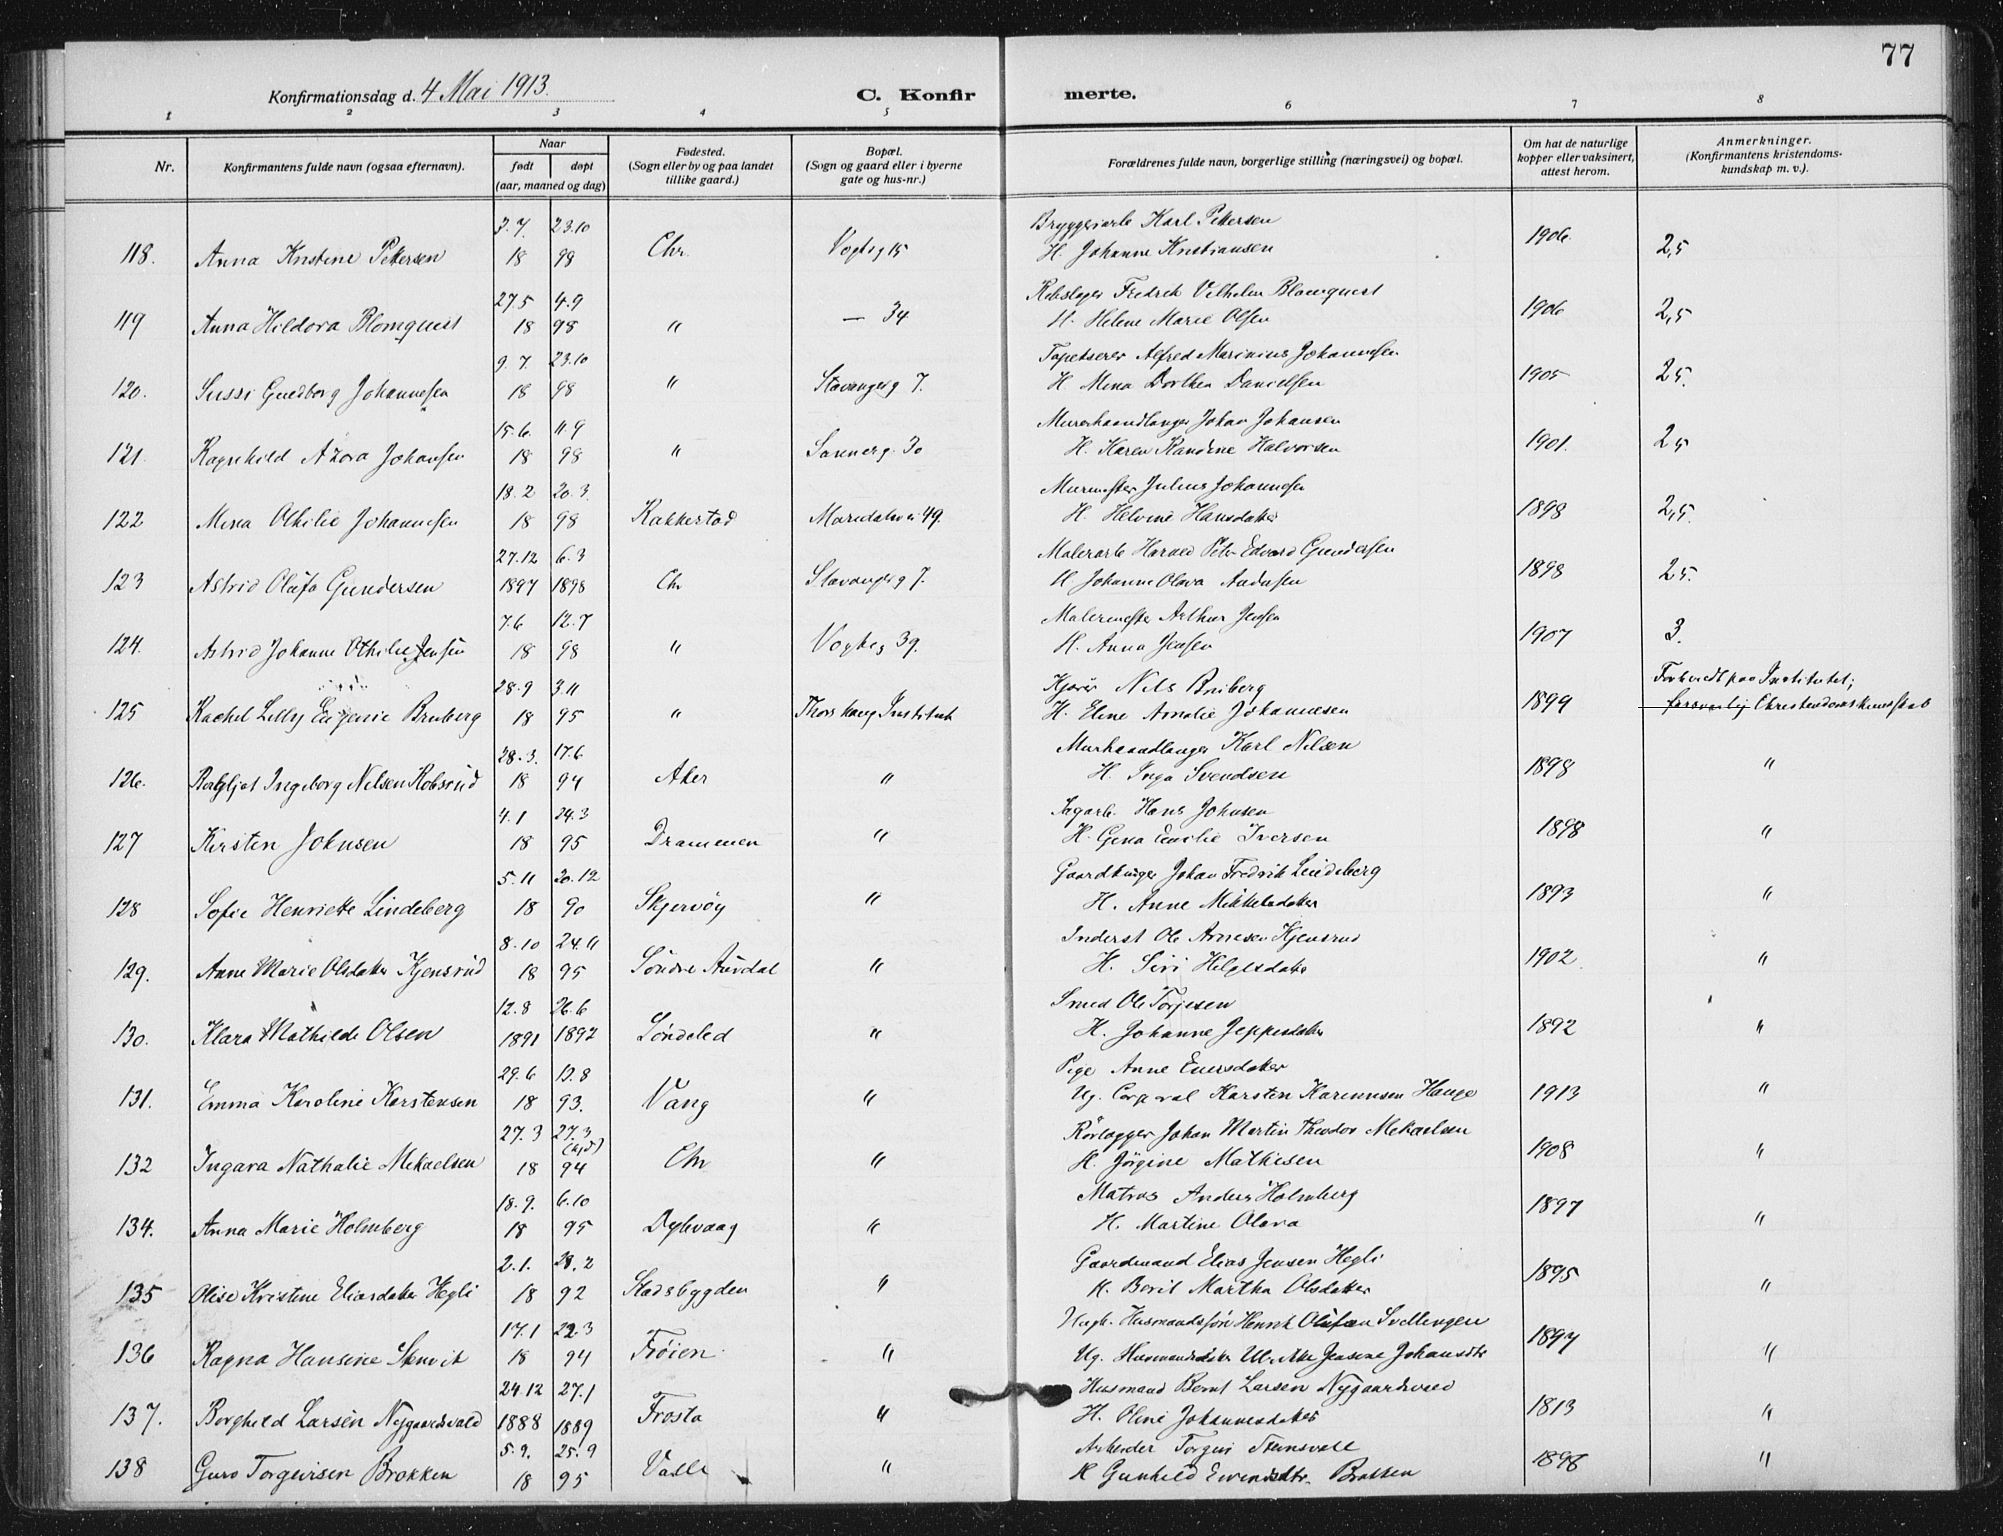 77
Konfirmationsdag d. 4 Mai 1913.
C. Konfirmerte.
1 2 3 4 5 6 7 8
Nr. Konfirmantens fulde navn (ogsaa efternavn). Naar født døpt (aar, maaned og dag) Fødested. (Sogn eller by og paa landet tillike gaard.) Bopæl. (Sogn og gaard eller i byerne gate og hus-nr.) Forældrenes fulde navn, borgerlige stilling (næringsvei) og bopæl. Om hat de naturlige kopper eller vaksinert, attest herom. Anmerkninger. (Konfirmantens kristendomskundskap m. v.).
3.7 23.10 Bryggeriarb Karl Pettersen
118. Anna Kristine Pettersen 18 98 Chr. Vogtsg 15 H. Johanne Kristiansen 1906. 2,5
27.5 4.9 Rebslager Fredrik Vilhelm Blomquist
119 Anna Hildora Blomquist 18 98 " — 34 H. Helene Marie Olsen 1906 2,5
9.7. 23.10 Tapetserer Alfred Marinius Johannesen
120. Sussi Guedborg Johannesen 18 98 " Stavangerg 7. H. Mina Dorthea Danielsen 1905 25.
15.6. 11 9 Murerhaandlanger Johan Johansen
121. Ragnhild Azora Johansen 18 98 " Sannerg. 30 H. Karen Randine Halvorsen 1901. 25
18.2 20.3. Murmester Julius Johannesen
122 Mina Othilie Johannesen 18 98 Rakkestad Maridalsvei 49. H. Helvine Hansdatter 1898 2,5.
27.12 6.3 Malerarb Harald Petr Edvard Gundersen
123 Astrid Olufa Gundersen 1897 1898 Chr Stavangerg 7. H Johanne Olava Andersen 1898 25.
7.6 12.7 Malermester Arthur Jensen
124. Astrid Johanne Othilie Jensen 18 98 " Vogtsg 39. H. Anna Jensen 1907 3.
28.9 3.11 Nils Bruberg Forberedt paa Institutet;
125 Rachel Lilly Eugenie Bruberg 18 95 " Thorshaug Institut H. Eline Amalie Johannesen 1899 forsvarlig Christendomskundskab
28.3. 17.6 Murhaandlanger Karl Nilsen
126. Ragljot Ingeborg Nilsen Robsrud 18 94 Aker " H. Inga Svendsen 1898 "
4.1 24.3 Sagarb. Hans Johnsen
127 Kirsten Johnsen 18 95 Drammen " H. Gina Emilie Iversen 1898 "
5.11 20.12 Gaardbruger Johan Fredrik Lindeberg
128 Sofie Henriette Lindeberg 18 90 Skjervøy " H. Anne Mikkelsdatter 1893 "
8.10 24.11 Inderst Ole Arnesen Kjensrud
129. Anne Marie Olsdatter Kjensrud 18 95 Søndre Aurdal " H. Siri Helgesdatter 1902 "
12.8 26.6 Smed Ole Torjesen
130. Klara Mathilde Olsen 1891 1892 Søndeled " H. Johanne Jeppesdatter 1892 "
29.6 13.8 Pige Anne Eversdatter
131. Emma Karoline Karstensen 18 93. Vang " Ug. Corporal Karsten Karennsen Hauge 1913 "
27.3 27.3 Rørlægger Johan Martin Theodor Mekaelsen
132 Ingara Nathalie Mekaelsen 18 94 Chr " H. Jørgine Mathisen 1908 "
18.9. 6.10 Matros Anders Holmberg
134. Anna Marie Holmberg 18 95 Dybvaag " H. Martine Olava 1897 "
2.1. 28.2 Gaardmand Elias Jensen Hegli
135 Olise Kristine Eliasdatter Hegli 18 92 Stadsbygden " H. Berit Martha Olsdatter 1895 "
17.1 22.3 Ungk. Husmandssøn Henrik Olufsen Svellingen
136 Ragna Hansine Stenvik 18 94 Frøien " Ug. Husmandsdatter Ulrikke Jensine Johansdtr 1897 "
24.12 27.1 Husmand Bernt Larsen Nygaardsvald
137. Borghild Larsen Nygaardsvald 1888 1889 Frosta " H. Oline Johannesdatter 1813 "
5.9. 25.9 Arbeider Torgeir Steinsvall
138 Guro Torgeirsen Brokken 18 95 Valle " H Gunhild Eivendsdtr. Brokken 1898 "